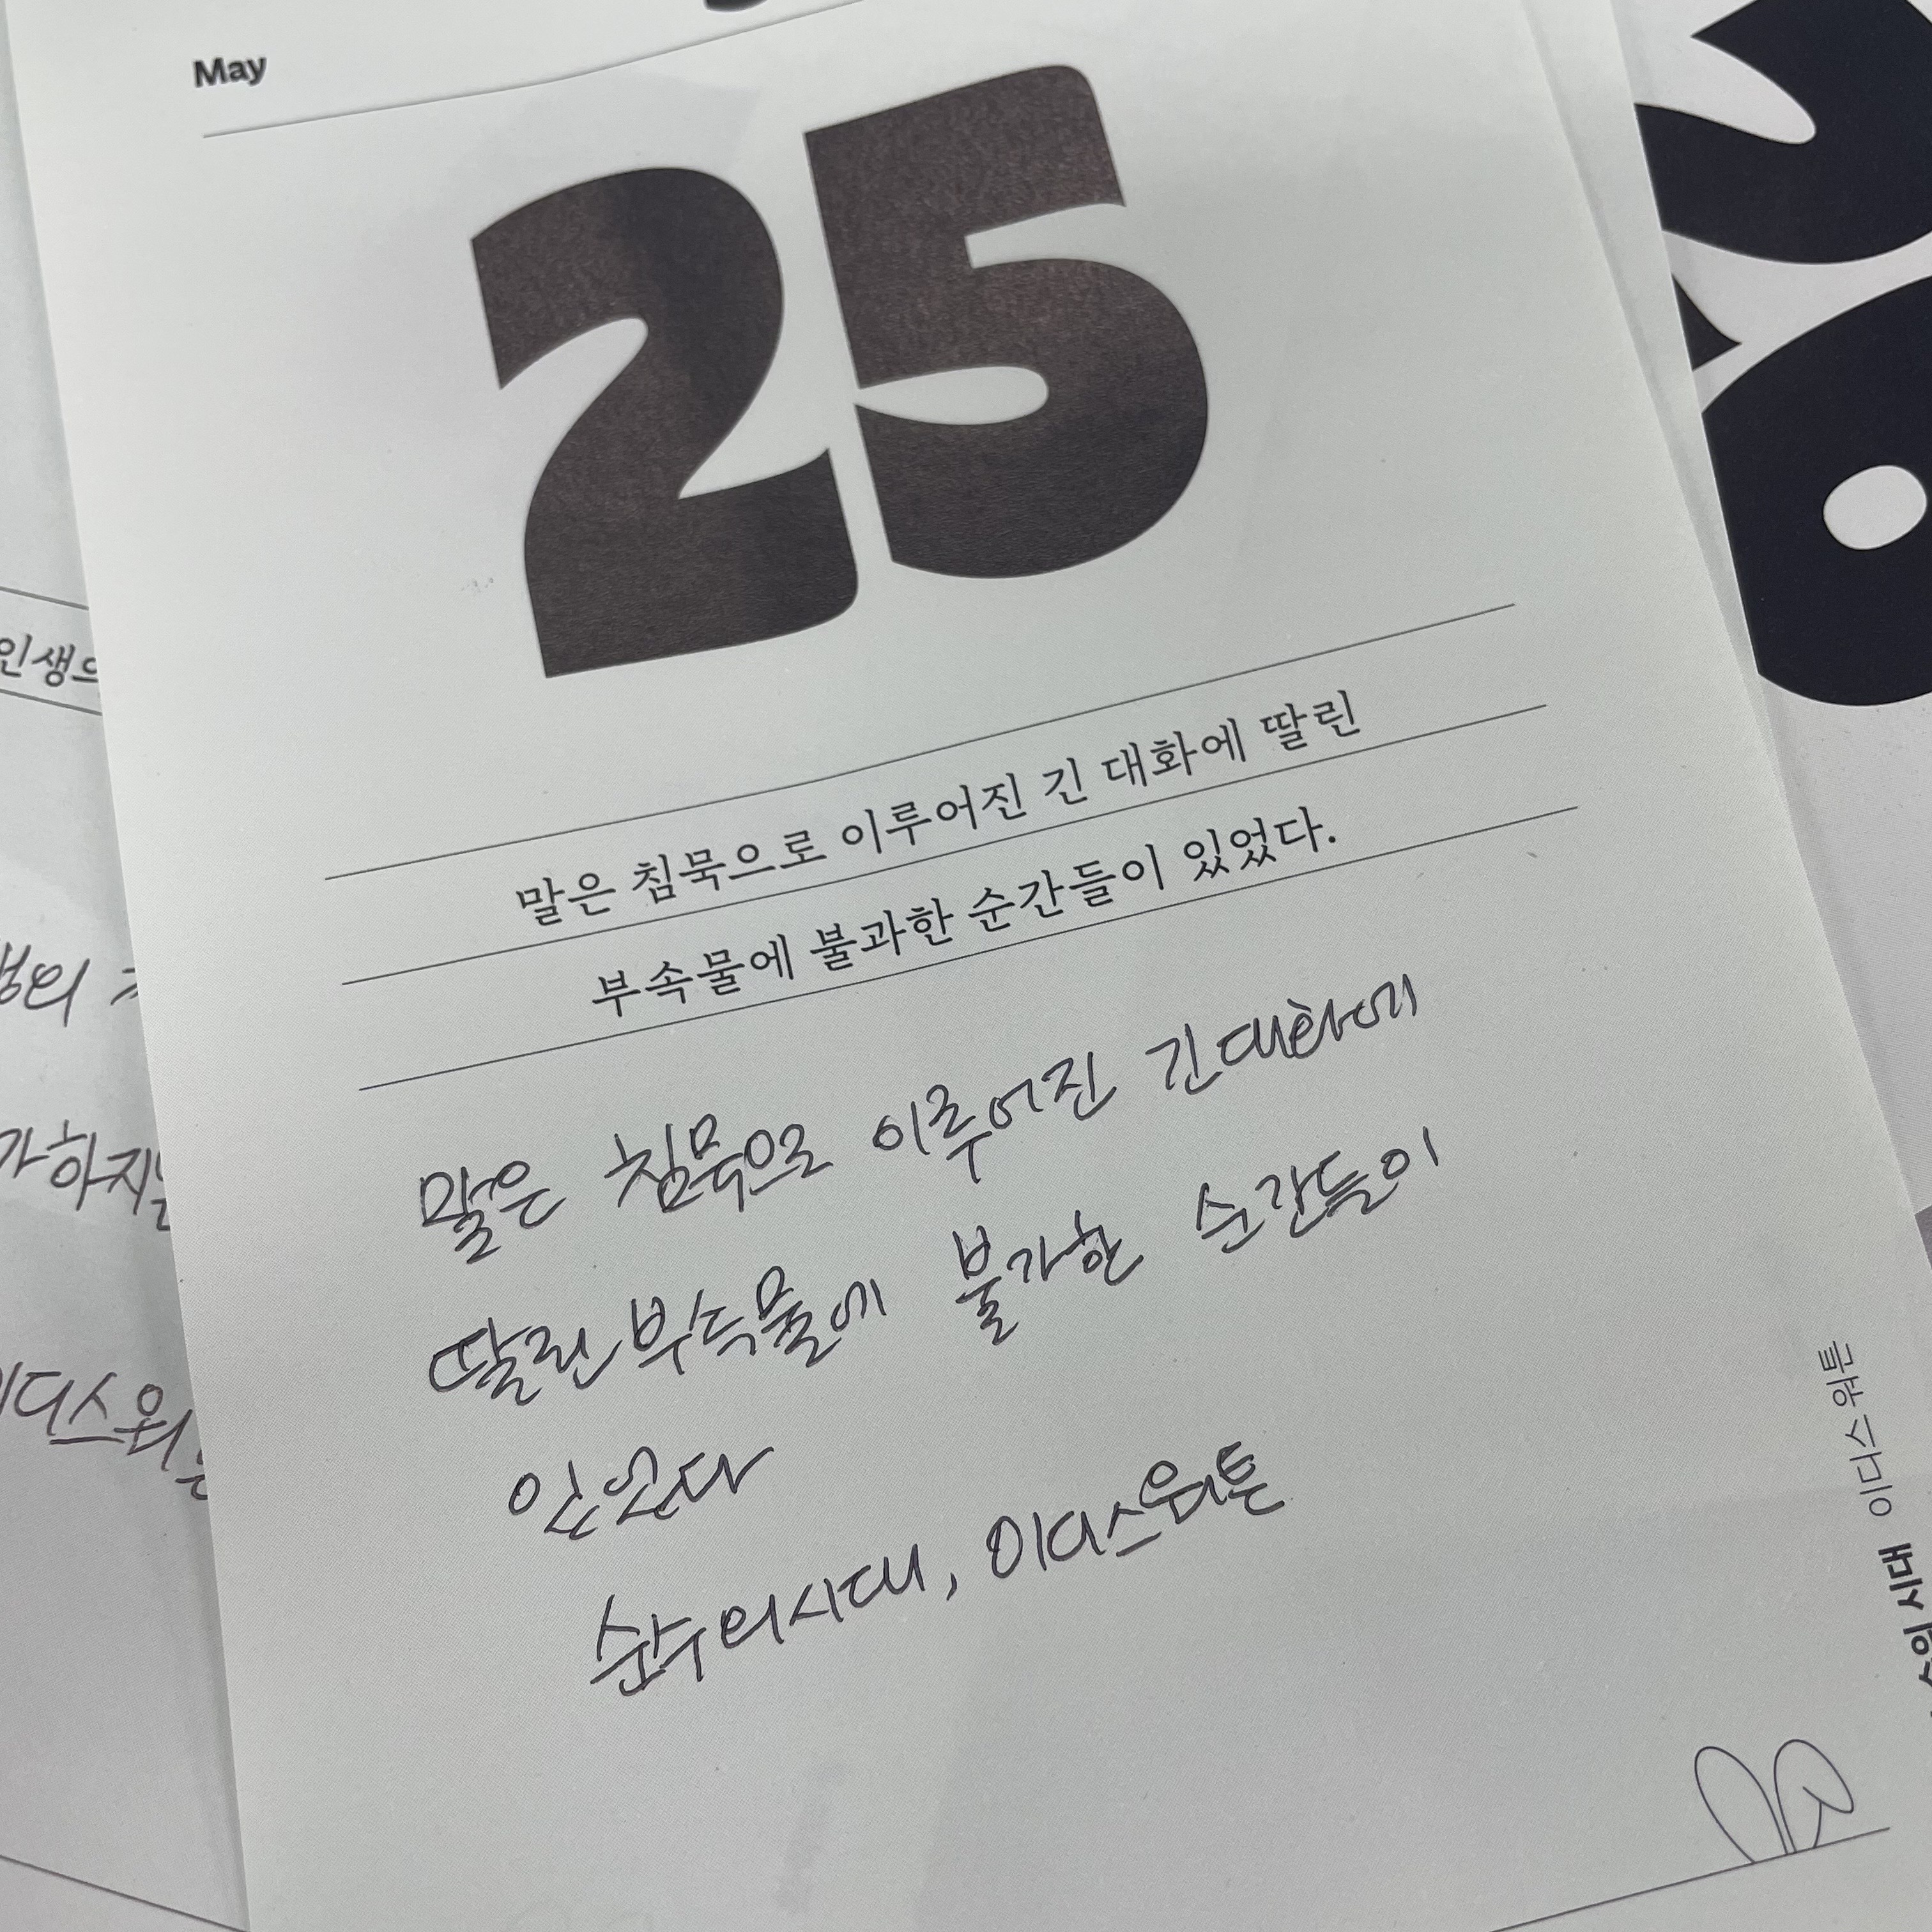 May
25
말은 침묵으로 이루어진 긴 대화에 딸린
부속물에 불과한 순간들이 있었다.
말은 침묵으로 이루어진 긴 대화에
딸린 부속물에 불가한 순간들이
있었다
순수의시대, 이디스워튼
의 시대 이디스 워튼
인생으
생의
가하지는
이디스워튼